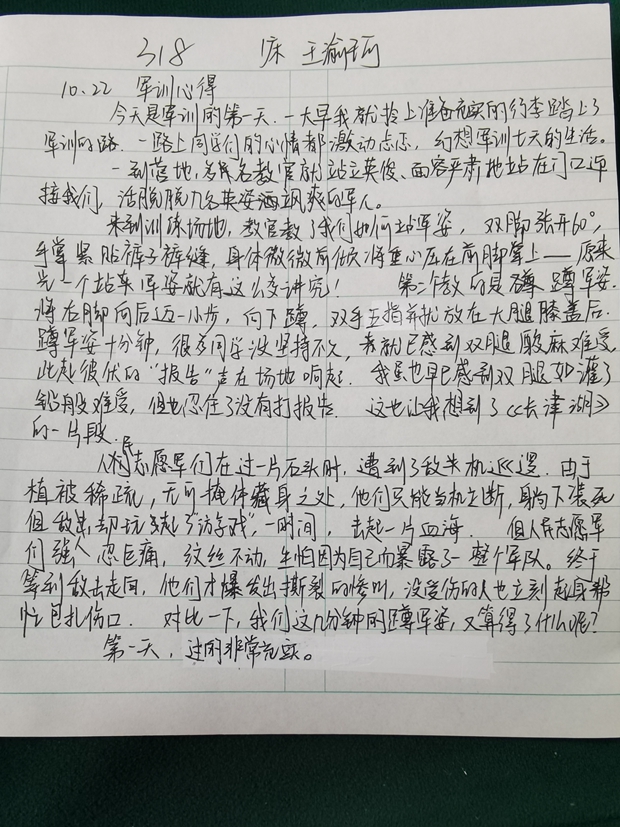 318 1床 王瑜珂
10.22 军训心得
今天是军训的第一天.一大早我就拎上准备充实的行李踏上了
军训的路.一路上同学们的心情都激动忐忑,幻想军训七天的生活。
一到营地,名教官就站立英俊、面容严肃地站在门口迎
接我们,活脱脱几名英姿洒飒爽的军人。
来到训练场地,教官教了我们如何站军姿,双脚张开60°,
手掌紧贴裤子裤缝,身体微微前倾将重心压在前脚掌上——原来
光一个站军姿就有这么多讲究!第二个教的是蹲军姿.
将右脚向后迈一小步,向下蹲,双手五指并拢放在大腿膝盖后.
蹲军姿十分钟,很多同学没坚持不久,就已感到双腿酸麻难受,
此起彼伏的“报告”声在场地响起.我虽也早已感到双腿如灌了
铅般难受,但也忍住了没有打报告.这也让我想到了《长津湖》
的一片段.
人民志愿军们在过一片石头时,遭到了敌美机巡逻.由于
植被稀疏,无可掩体藏身之处,他们只能当机立断,躺下装死
但敌却玩起了“游戏”,一时间,去起一片血海.但人民志愿军
们强忍巨痛,纹丝不动,生怕因为自己而暴露了一整个军队。终于
等到敌走向,他们才爆发出撕裂的惨叫,没受伤的人也立刻起身帮
忙包扎伤口.对比一下,我们这几分钟的蹲军姿,又算得了什么呢?
第一天,过的非常充实。